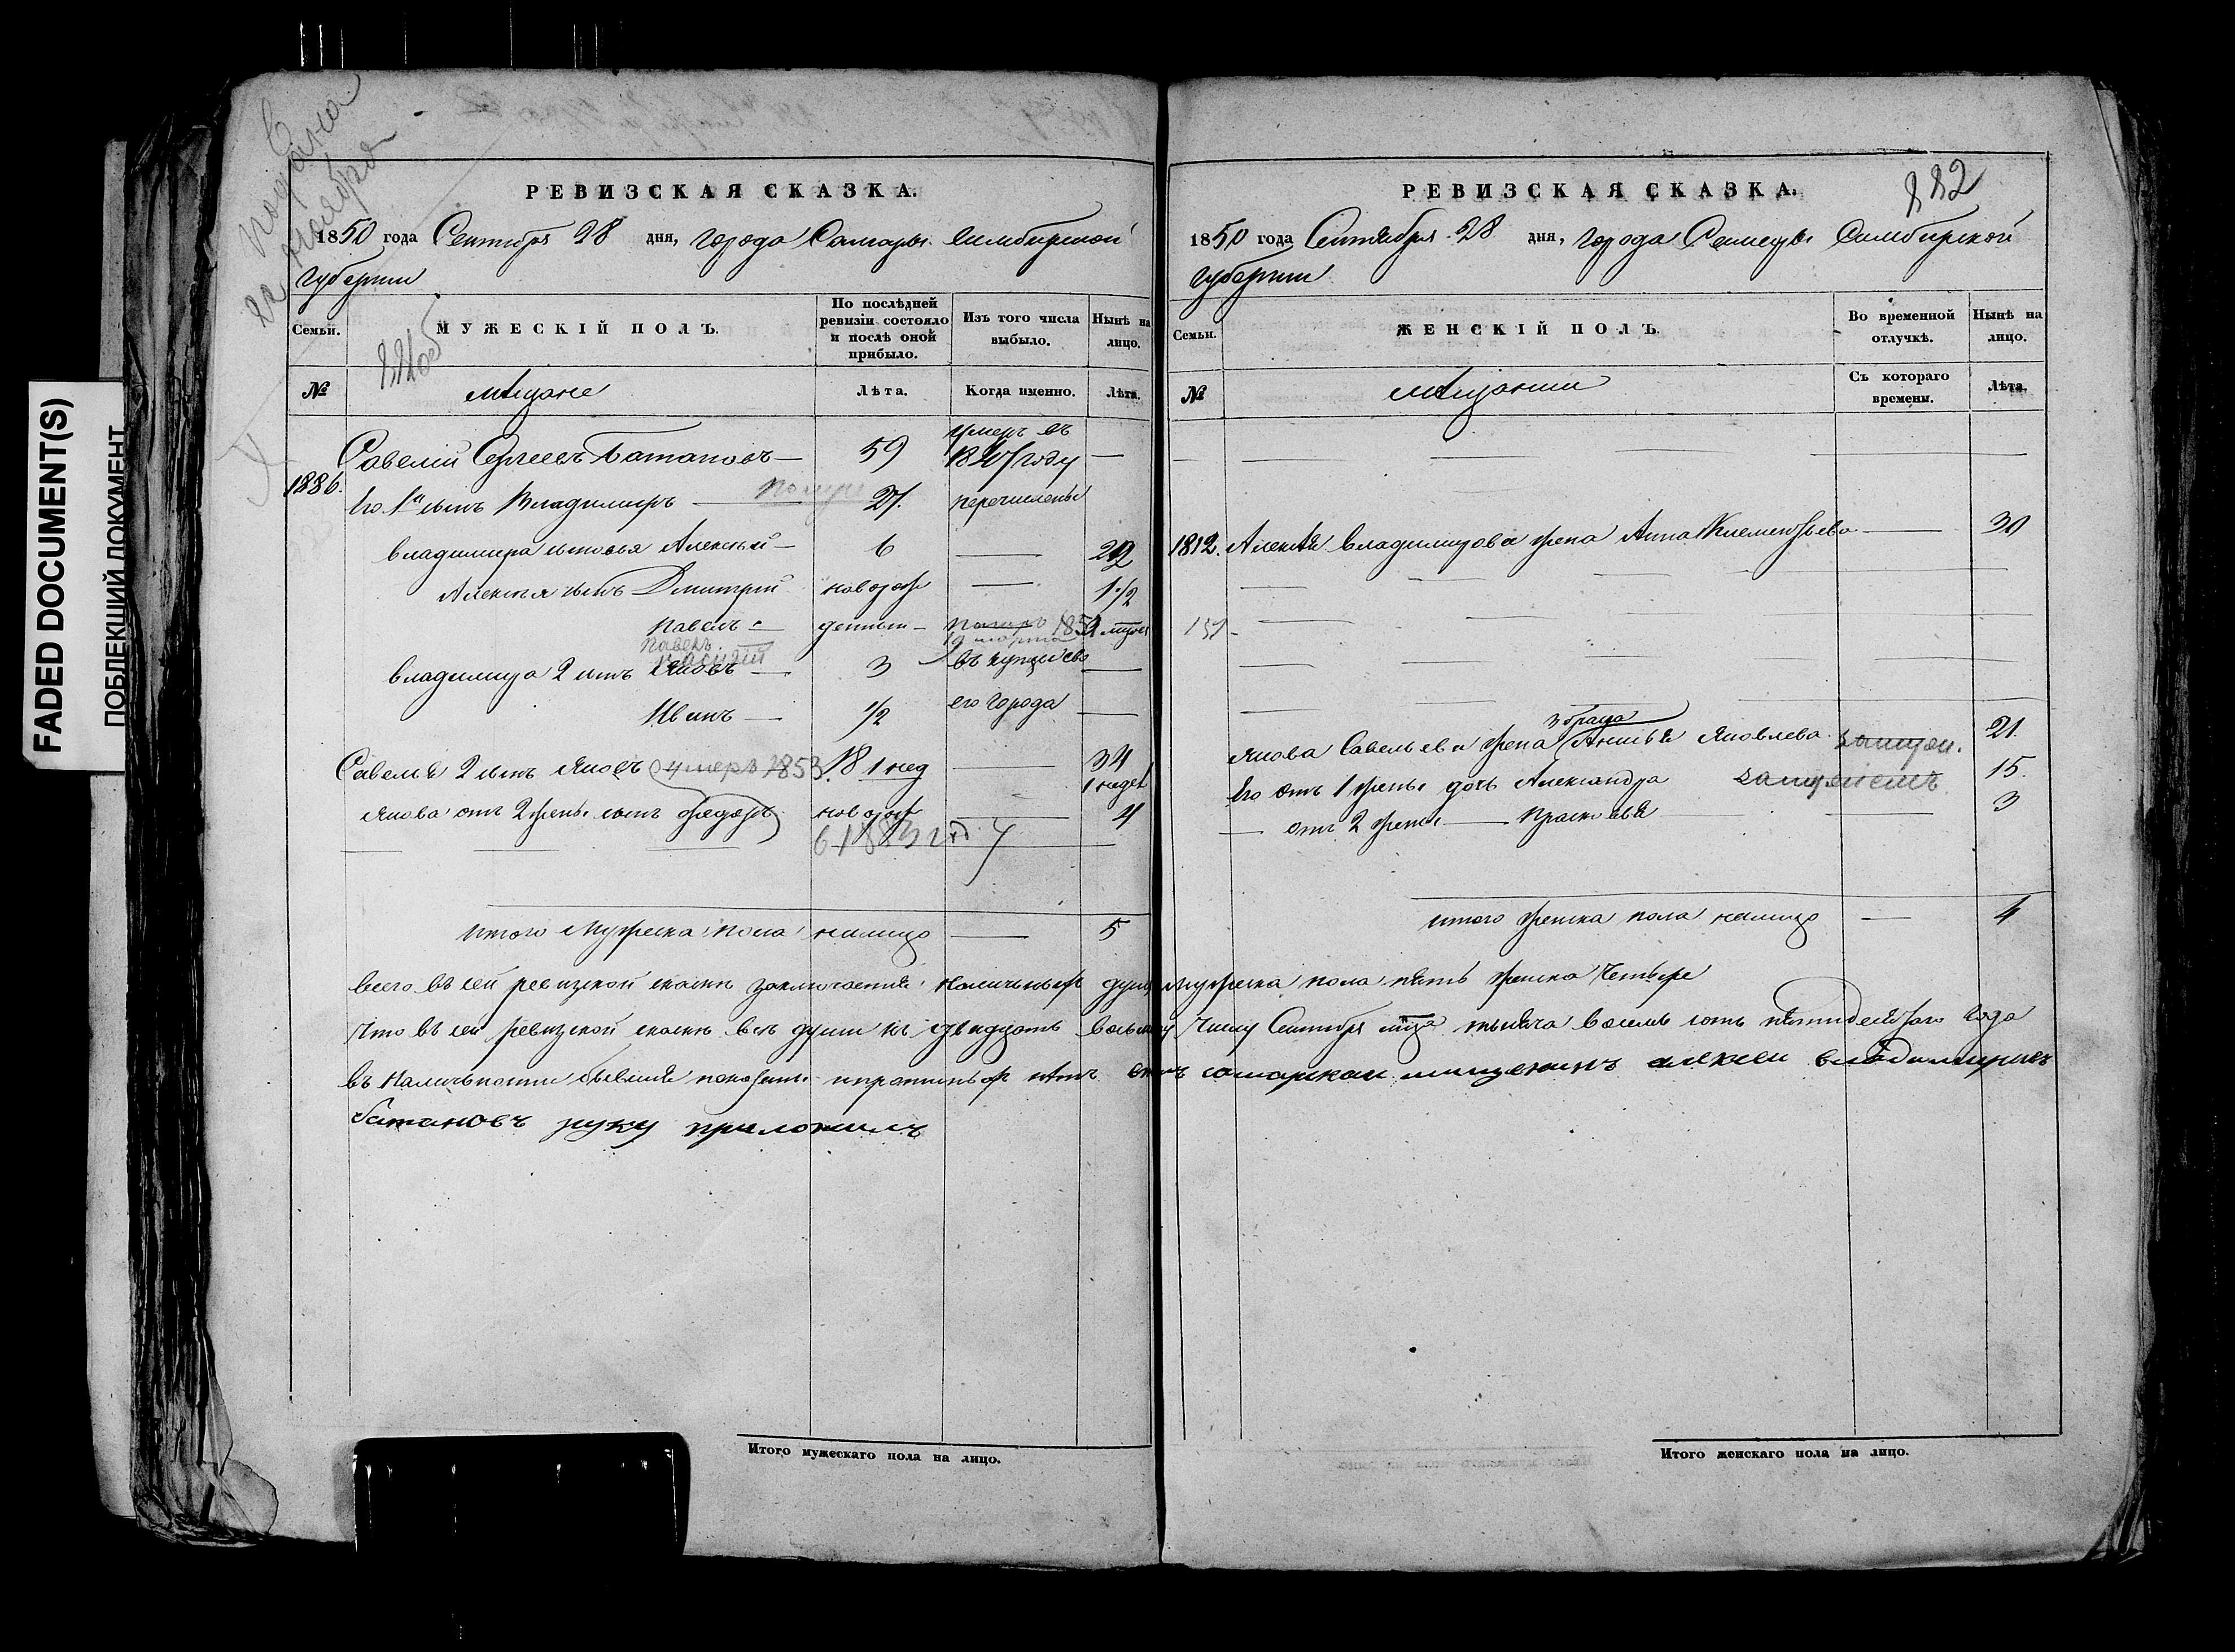 FADED DOCUMENT(S)
ПОБЛЕКШИЙ ДОКУМЕНТ
подана
РЕВИЗСКАЯ СКАЗКА.
1850 года Сентября 28 дня, города Самары Симбирской
губернии
Семьи. МУЖЕСКІЙ ПОЛЪ. По послѣдней ревизіи состояло и послѣ оной прибыло. Изъ того числа выбыло. Нынѣ на лицо.
№ мѣщане Лѣта. Когда именно. Лѣта.
Савелій Сергеевъ Батановъ — 59 умеръ въ году —
1886. Его 1й сынъ Владимиръ — 27. перечислены
Владимира сыновья Алексѣй — 6 — 22
Алексѣя сынъ Дмитрій новорож — 1 1/2
Павелъ —
Павелъ
Владимира 2 сынъ Яковъ — 3 въ купцы сего —
Иванъ — 1/2 города —
Савелья 2 сынъ Яковъ умеръ 1853. 18 1 нед — 34
Якова отъ 2 жены сынъ Федоръ новорож — 4
итого мужеска пола налицо — 5
РЕВИЗСКАЯ СКАЗКА.
882
1850 года Сентября 28 дня, города Самары Симбирской
губернии
Семьи. ЖЕНСКІЙ ПОЛЪ. Во временной отлучкѣ. Нынѣ на лицо.
№ мѣщанки Съ котораго времени. Лѣта.
1812. Алексѣя Владимирова жена Анна Клементьева — 30
3 брака
Якова Савельева жена Анисья Яковлева 21.
Его отъ 1 жены дочь Александра замужемъ 15.
— отъ 2 жены — Прасковья — 3
итого женска пола налицо — 4
всего въ сей ревизской сказкѣ заключается наличныхъ душъ мужеска пола пять женска четыре
Что въ сей ревизской сказкѣ всѣ души къ двадцать восьмому числу Сентября мца тысяча восемь сотъ пятидесятаго года
въ наличности бывшія показаны и пропинныхъ нѣтъ самарской мещенинъ алексеи владимиривъ
батановъ руку приложилъ
Итого мужескаго пола на лицо.
Итого женскаго пола на лицо.